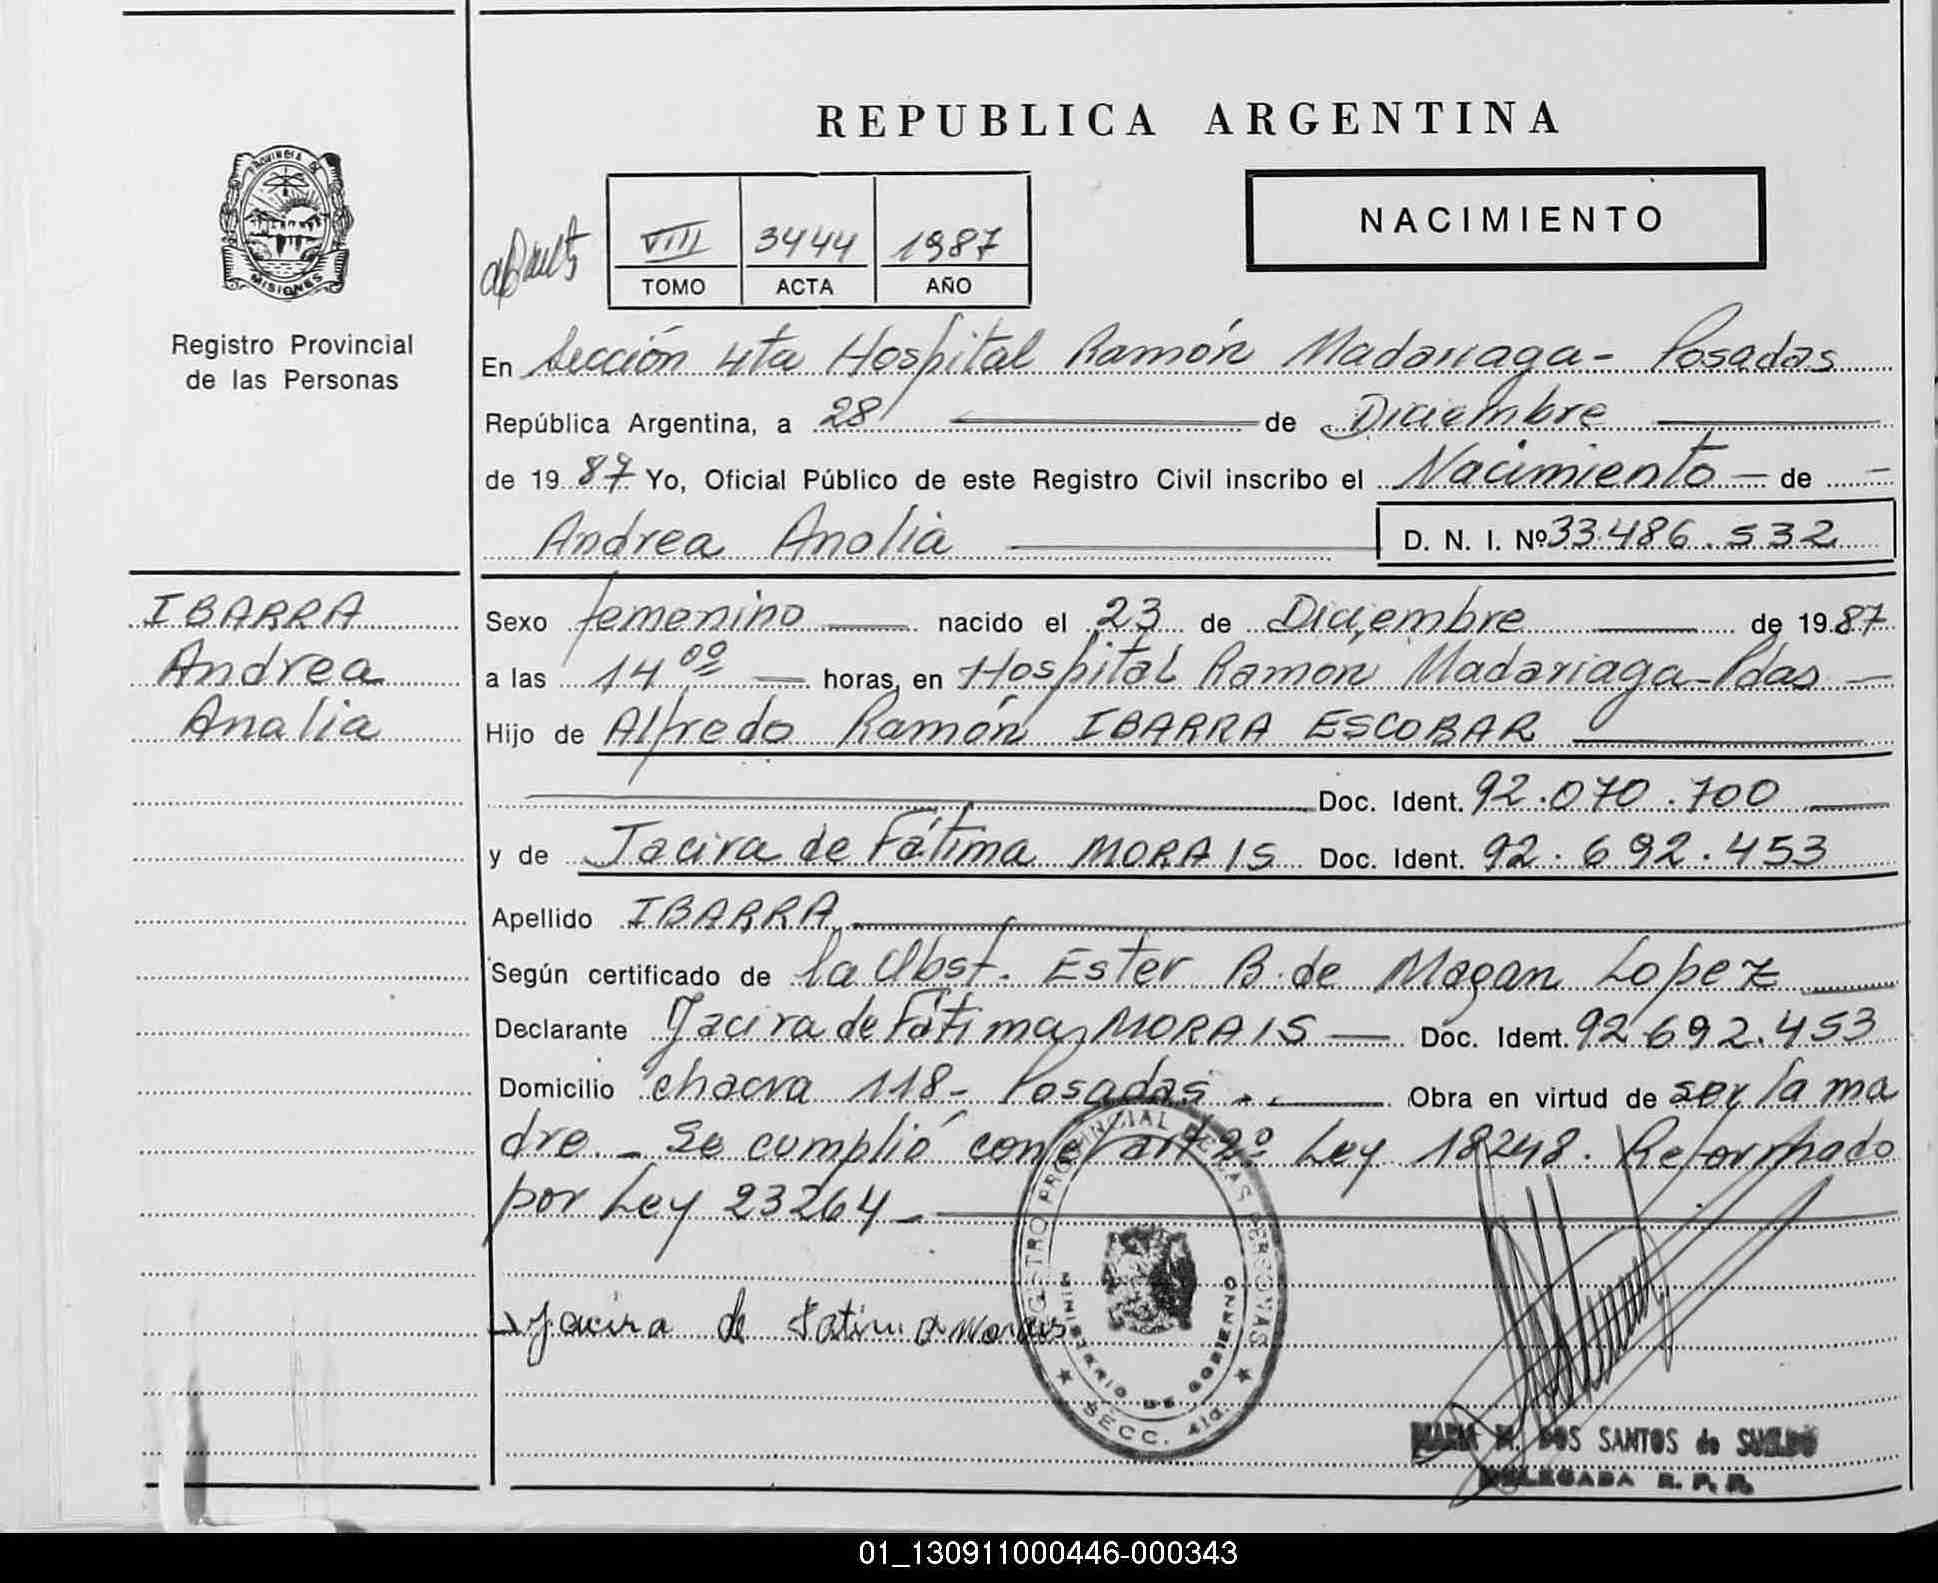 REPUBLICA ARGENTINA
PROVINCIA DE
MISIONES
Registro Provincial
de las Personas
NACIMIENTO
VIII 3444 1987
TOMO ACTA AÑO
En Sección 4ta Hospital Ramón Madariaga - Posadas
República Argentina, a 28 de Diciembre
de 1987 Yo, Oficial Público de este Registro Civil inscribo el Nacimiento - de -
Andrea Analia D. N. I. Nº 33.486.532
IBARRA
Andrea
Analia
Sexo femenino nacido el 23 de Diciembre de 1987
a las 14 00 horas, en Hospital Ramón Madariaga - Pdas -
Hijo de Alfredo Ramón IBARRA ESCOBAR
Doc. Ident. 92.070.700
y de Jacira de Fátima MORAIS Doc. Ident. 92.692.453
Apellido IBARRA
Según certificado de la Obst. Ester B. de Magan Lopez
Declarante Jacira de Fátima MORAIS - Doc. Ident. 92.692.453
Domicilio chacra 118 - Posadas . - Obra en virtud de ser la ma
dre. - Se cumplió con el art 2º Ley 18248. Reformado
por Ley 23264 -
Jacira de Fatima Morais
REGISTRO PROVINCIAL DE LAS PERSONAS
MINISTERIO DE GOBIERNO
SECC. 4ta.
MARIA M. DOS SANTOS de SUELDO
DELEGADA R. P. P.
01_130911000446-000343